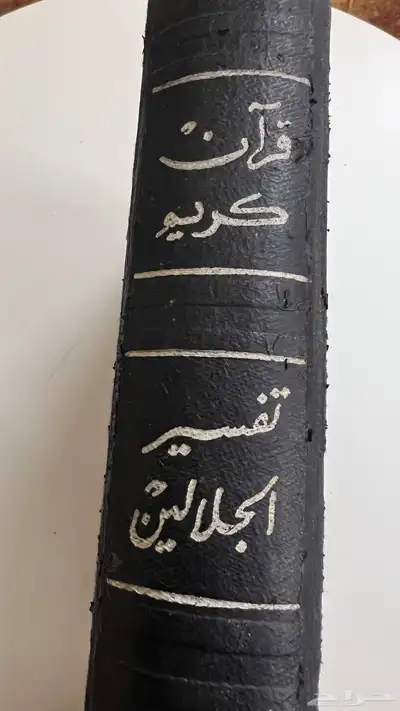 قرآن
كريم
تفسير
الجلالين
حراج